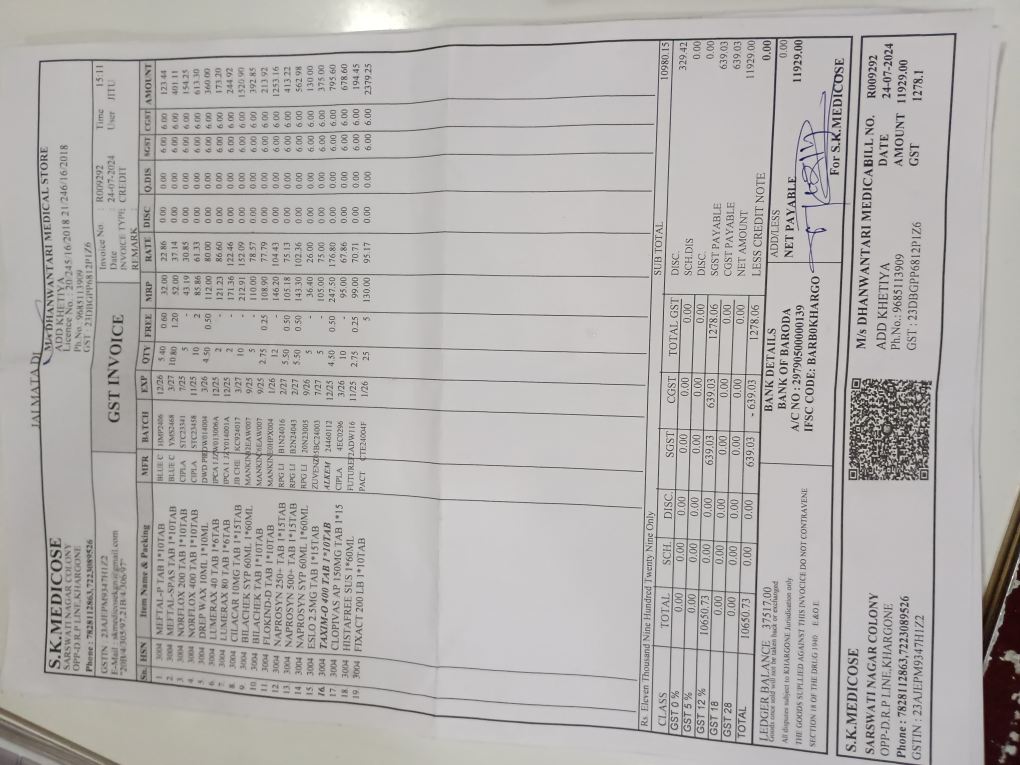 JAI MATA DI
S.K.MEDICOSE
SARSWATI NAGAR COLONY
OPP-D.R.P LINE,KHARGONE
Phone : 7828112863,7223089526
GSTIN : 23AJEPM9347H1Z2
GST INVOICE
M/s DHANWANTARI MEDICAL STORE
ADD KHETIYA
Licence No. : 20/245/16/2018 21/246/16/2018
Ph.No. : 9685113909
GST : 23DBGPP6812P1Z6
Invoice No. : R009292 Time : 15:11
Date : 24-07-2024 User : JITU
INVOICE TYPE: CREDIT
REMARK :
Sn. HSN Item Name & Packing MFR BATCH EXP QTY FREE MRP RATE DISC Q.DIS SGST CGST AMOUNT
1. 3004 MEFTAL-P TAB 1*10TAB BLUE C HMP2406 12/26 5.40 0.60 32.00 22.86 0.00 0.00 6.00 6.00 123.44
2. 3004 MEFTAL-SPAS TAB 1*10TAB BLUE C YMS2468 3/27 10.80 1.20 52.00 37.14 0.00 0.00 6.00 6.00 401.11
3. 3004 NORFLOX 200 TAB 1*10TAB CIPLA STC23341 7/25 5 - 43.19 30.85 0.00 0.00 6.00 6.00 154.25
4. 3004 NORFLOX 400 TAB 1*10TAB CIPLA STC23458 11/25 10 2 85.86 61.33 0.00 0.00 6.00 6.00 613.30
5. 3004 DREP WAX 10ML 1*10ML DWD 3/26 4.50 0.50 112.00 80.00 0.00 0.00 6.00 6.00 360.00
6. 3004 LUMERAX 40 TAB 1*6TAB IPCA 12/25 2 - 121.23 86.60 0.00 0.00 6.00 6.00 173.20
7. 3004 LUMERAX 80 TAB 1*6TAB IPCA 12/25 2 - 171.36 122.46 0.00 0.00 6.00 6.00 244.92
8. 3004 CILACAR 10MG TAB 1*15TAB JB CHE KC924017 3/27 10 - 212.91 152.09 0.00 0.00 6.00 6.00 1520.90
9. 3004 BILACHEK SYP 60ML 1*60ML MANKIN 9/25 5 - 110.00 78.57 0.00 0.00 6.00 6.00 392.85
10. 3004 BILACHEK TAB 1*10TAB MANKIN 9/25 2.75 0.25 108.90 77.79 0.00 0.00 6.00 6.00 213.92
11. 3004 FLOKIND-D TAB 1*10TAB MANKIN 1/26 12 - 146.20 104.43 0.00 0.00 6.00 6.00 1253.16
12. 3004 NAPROSYN 250+ TAB 1*15TAB RPG LI B1N24016 2/27 5.50 0.50 105.18 75.13 0.00 0.00 6.00 6.00 413.22
13. 3004 NAPROSYN 500+ TAB 1*15TAB RPG LI B2N24043 2/27 5.50 0.50 143.30 102.36 0.00 0.00 6.00 6.00 562.98
14. 3004 NAPROSYN SYP 60ML 1*60ML RPG LI 20N23005 9/26 5 - 36.40 26.00 0.00 0.00 6.00 6.00 130.00
15. 3004 ESLO 2.5MG TAB 1*15TAB ZUVENZ 7/27 5 - 105.00 75.00 0.00 0.00 6.00 6.00 375.00
16. 3004 TAXIM-O 400 TAB 1*10TAB ALKEM 24460112 12/25 4.50 0.50 247.50 176.80 0.00 0.00 6.00 6.00 795.60
17. 3004 CLOPIVAS AP 150MG TAB 1*15 CIPLA 4EC0296 3/26 10 - 95.00 67.86 0.00 0.00 6.00 6.00 678.60
18. 3004 HISTAFREE SUS 1*60ML FUTURE 11/25 2.75 0.25 99.00 70.71 0.00 0.00 6.00 6.00 194.45
19. 3004 FIXACT 200 LB 1*10TAB PACT 1/26 25 5 130.00 95.17 0.00 0.00 6.00 6.00 2379.25
Rs. Eleven Thousand Nine Hundred Twenty Nine Only
CLASS TOTAL SCH. DISC. SGST CGST TOTAL GST
GST 0 % 0.00 0.00 0.00 0.00 0.00 0.00
GST 5 % 0.00 0.00 0.00 0.00 0.00 0.00
GST 12 % 10650.73 0.00 0.00 639.03 639.03 1278.06
GST 18 0.00 0.00 0.00 0.00 0.00 0.00
GST 28 0.00 0.00 0.00 0.00 0.00 0.00
TOTAL 10650.73 0.00 0.00 639.03 - 639.03 1278.06
SUB TOTAL 10980.15
DISC. 329.42
SCH.DIS 0.00
DISC. 0.00
SGST PAYABLE 639.03
CGST PAYABLE 639.03
NET AMOUNT 11929.00
LESS CREDIT NOTE 0.00
ADD/LESS 0.00
NET PAYABLE 11929.00
LEDGER BALANCE 37517.00
Goods once sold will not be taken back or exchanged
All disputes subject to KHARGONE Juridisation only
THE GOODS SUPLIED AGAINST THIS INVOICE DO NOT CONTRAVENE
SECTION 18 OF THE DRUG 1940 E.&O.E
BANK DETAILS
BANK OF BARODA
A/C NO : 29790500000139
IFSC CODE: BARB0KHARGO
For S.K.MEDICOSE
S.K.MEDICOSE
SARSWATI NAGAR COLONY
OPP-D.R.P LINE,KHARGONE
Phone : 7828112863,7223089526
GSTIN : 23AJEPM9347H1Z2
M/s DHANWANTARI MEDICAL
ADD KHETIYA
Ph.No.: 9685113909
GST : 23DBGPP6812P1Z6
BILL NO. R009292
DATE 24-07-2024
AMOUNT 11929.00
GST 1278.1